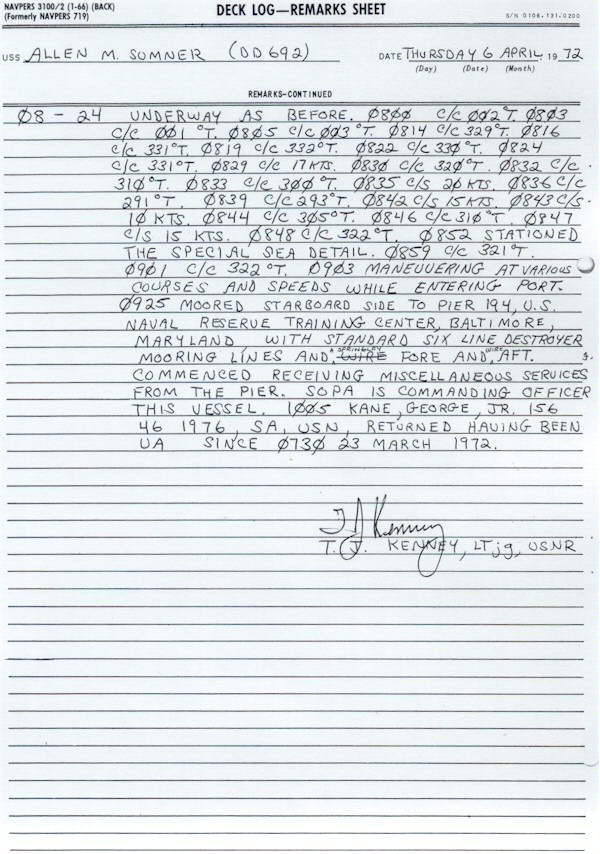 NAVPERS 3100/2 (1-66) (BACK)
(Formerly NAVPERS 719)
DECK LOG—REMARKS SHEET
S/N 0108-131-0200
USS ALLEN M. SUMNER (DD692) DATE THURSDAY 6 APRIL, 19 72
(Day) (Date) (Month)
REMARKS—CONTINUED
Ø8 - 24 UNDERWAY AS BEFORE. Ø8ØØ C/C ØØ2°T. Ø8Ø3
C/C ØØ1 °T. Ø8Ø5 C/C ØØ3°T. Ø814 C/C 329°T. Ø816
C/C 331°T. Ø819 C/C 332°T. Ø822 C/C 33Ø°T. Ø824
C/C 331°T. Ø829 C/C 17KTS. Ø83Ø C/C 32Ø°T. Ø832 C/C
31Ø°T. Ø833 C/C 3ØØ°T. Ø835 C/S 2Ø KTS. Ø836 C/C
291°T. Ø839 C/C 293°T. Ø842 C/S 15 KTS. Ø843 C/S
1Ø KTS. Ø844 C/C 3Ø5°T. Ø846 C/C 31Ø°T. Ø847
C/S 15 KTS. Ø848 C/C 322°T. Ø852 STATIONED
THE SPECIAL SEA DETAIL. Ø859 C/C 321°T.
Ø9Ø1 C/C 322°T. Ø9Ø3 MANEUVERING AT VARIOUS
COURSES AND SPEEDS WHILE ENTERING PORT.
Ø925 MOORED STARBOARD SIDE TO PIER 194, U.S.
NAVAL RESERVE TRAINING CENTER, BALTIMORE,
MARYLAND WITH STANDARD SIX LINE DESTROYER
MOORING LINES AND SPRINGLAY WIRE FORE AND WIRE AFT.
COMMENCED RECEIVING MISCELLANEOUS SERVICES
FROM THE PIER. SOPA IS COMMANDING OFFICER
THIS VESSEL. 1ØØ5 KANE, GEORGE, JR. 156
46 1976, SA, USN, RETURNED HAVING BEEN
UA SINCE Ø73Ø 23 MARCH 1972.
T J Kenney
T. J. KENNEY, LTjg, USNR